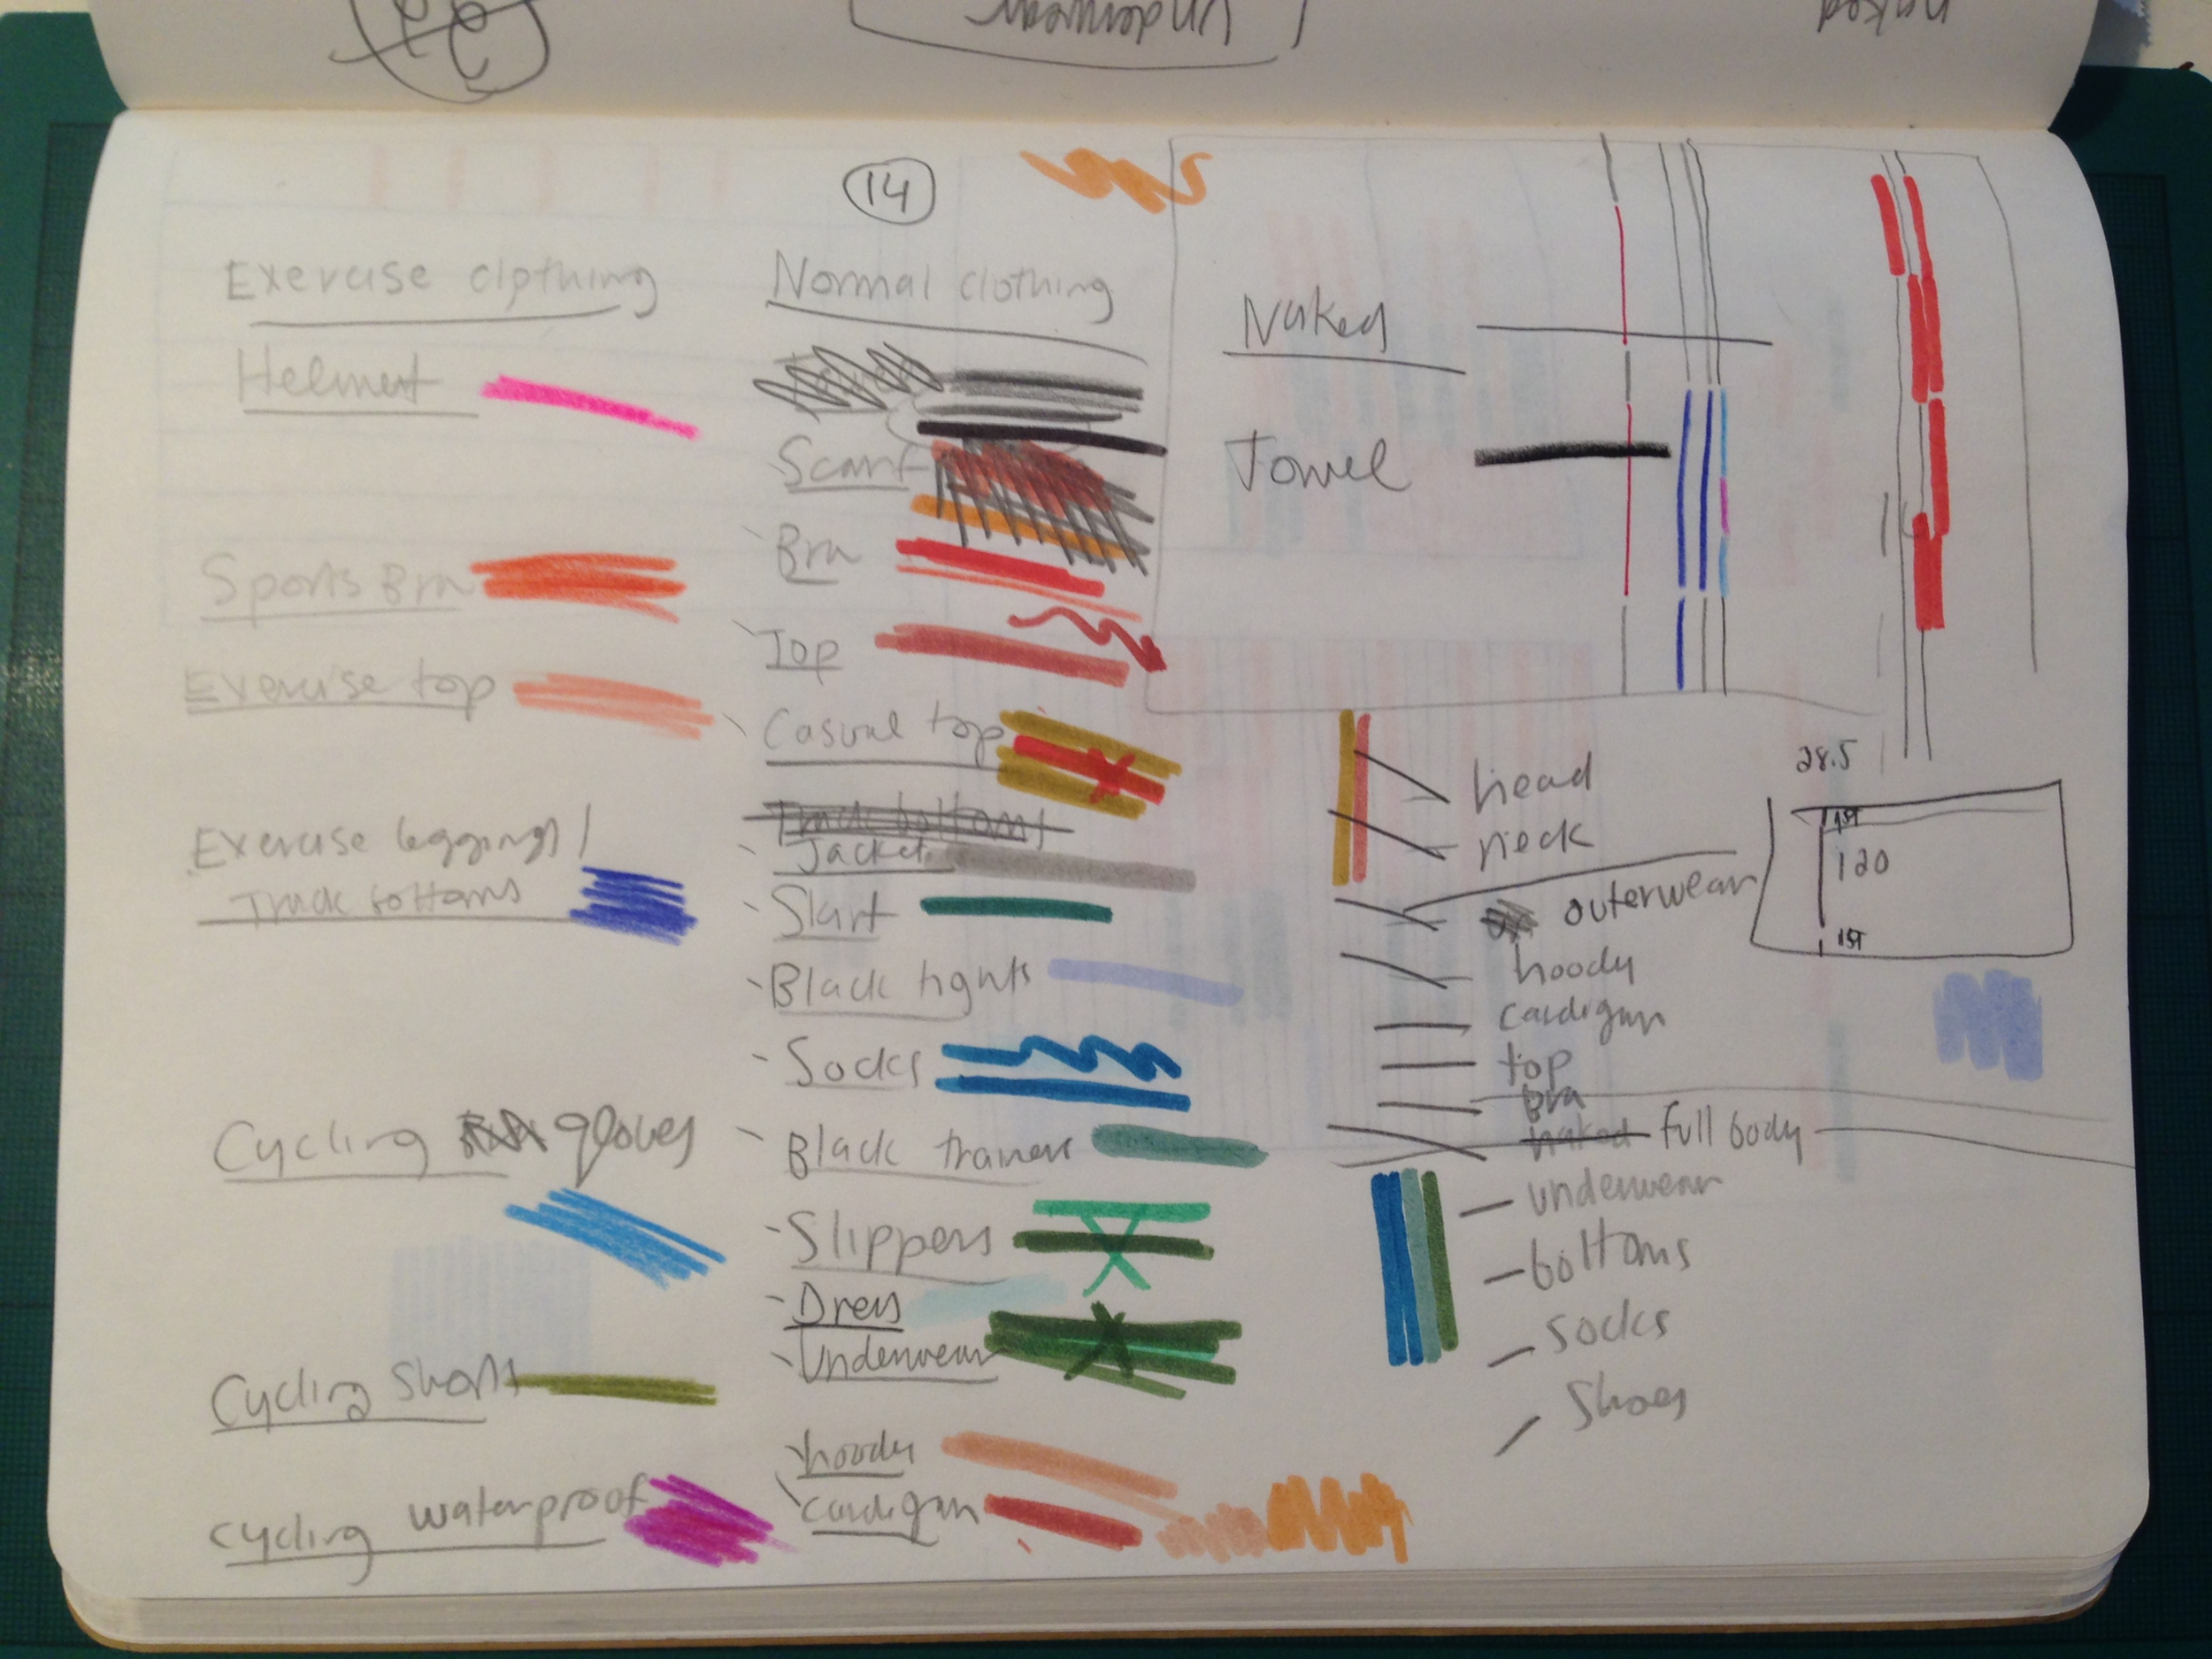 Underwear
naked
14
Exercise clothing
Helment
Sports Bra
Exercise top
Exercise leggings /
Track bottoms
Cycling gloves
Cycling shorts
cycling waterproof
Normal clothing
Scarf
Bra
Top
Casual top
Track bottoms
Jacket
Skirt
Black tights
Socks
Black trainers
Slippers
Dress
Underwear
hoody
cardigan
Naked
Towel
head
neck
outerwear
hoody
cardigan
top
Bra
naked full body
underwear
bottoms
socks
shoes
28.5
1st
120
1st